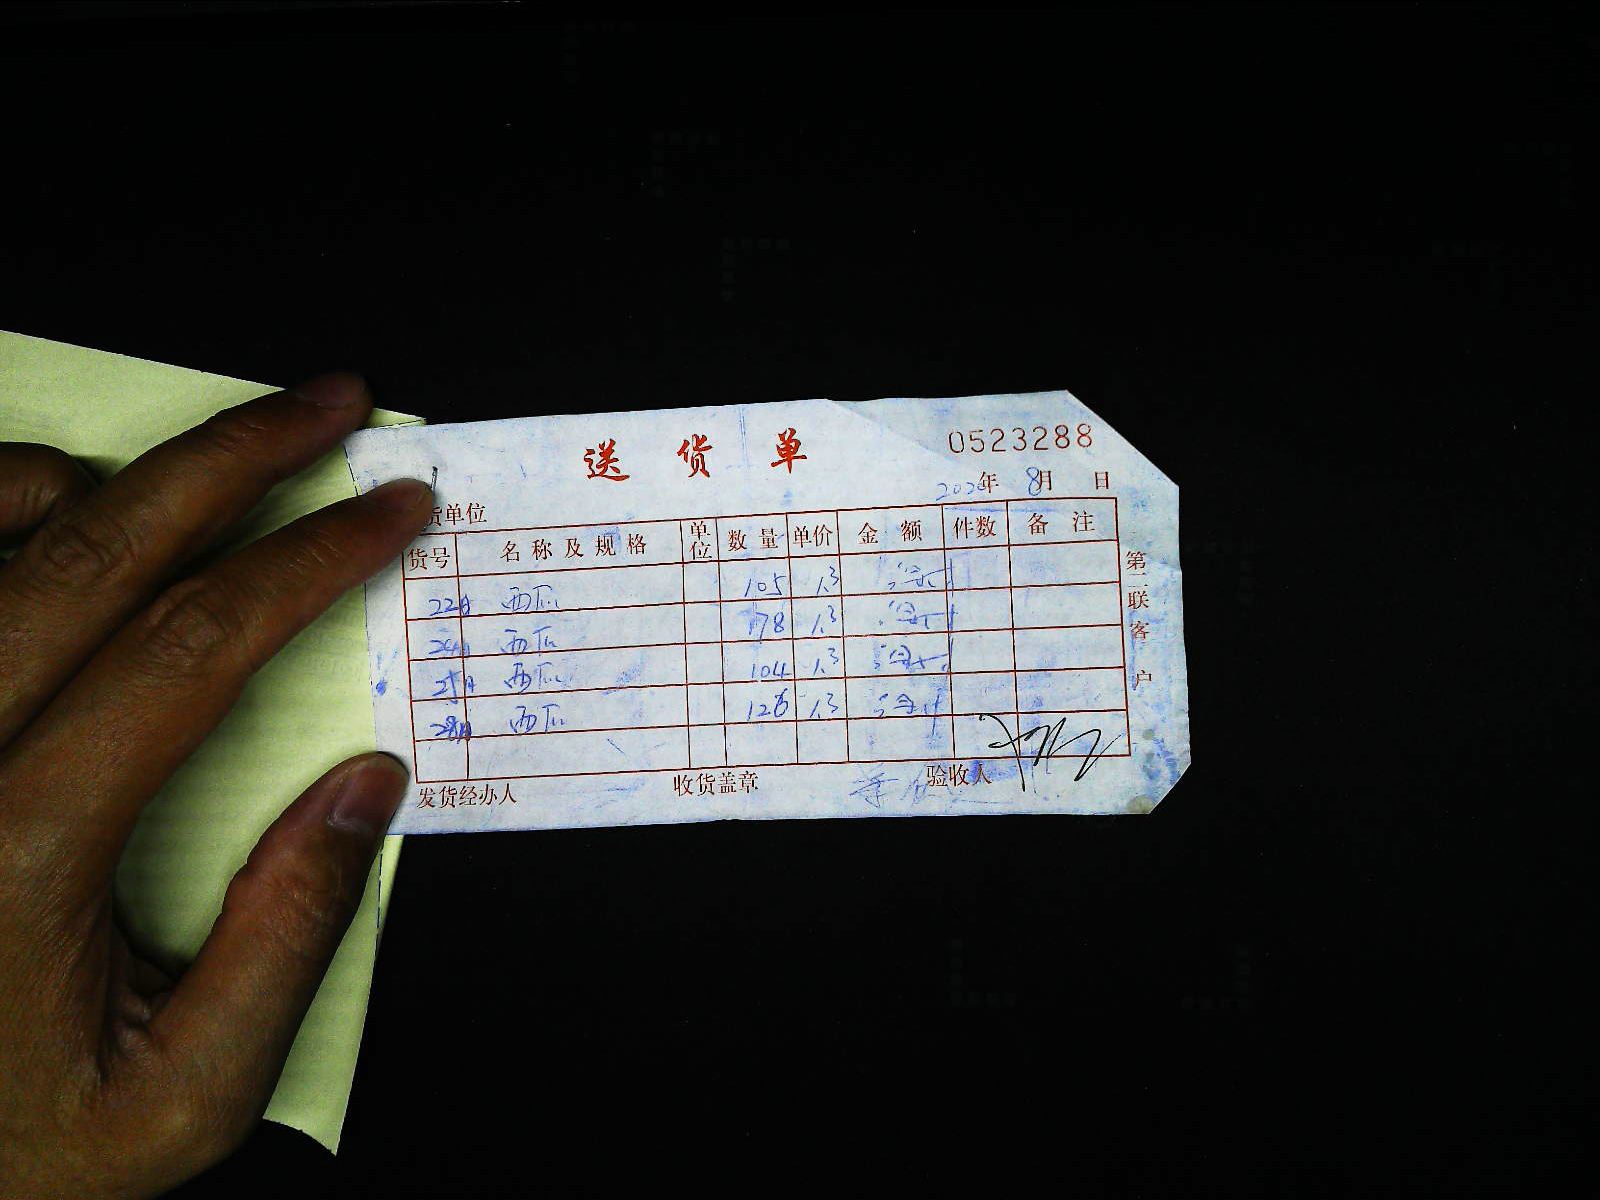 送货单 0523288
年 8月 日
货单位
货号 名称及规格 单位 数量 单价 金额 件数 备注
22日 西瓜 105 1.3
24日 西瓜 178 1.3
25日 西瓜 104 1.3
28日 西瓜 126 1.3
第二联 客户
发货经办人 收货盖章 验收人